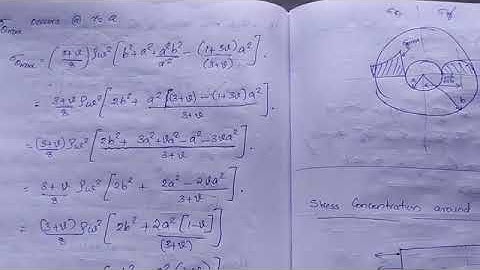 σmax occurs @ r= a
σmax = ((3+ν)/8) ρω² [b² + a² + a²b²/a² − (1+3ν)a²/(3+ν)].
= (3+ν)/8 ρω² [2b² + a²[(3+ν) − (1+3ν)a²/3+ν].
= (3+ν)/8 ρω² [2b² + 3a²+νa² − a² − 3νa²/3+ν]
= 3+ν/8 ρω² [2b² + 2a² − 2νa²/3+ν].
= (3+ν)/8 ρω² [2b² + 2a²[1−ν]/(3+ν)]
Stress Concentration around